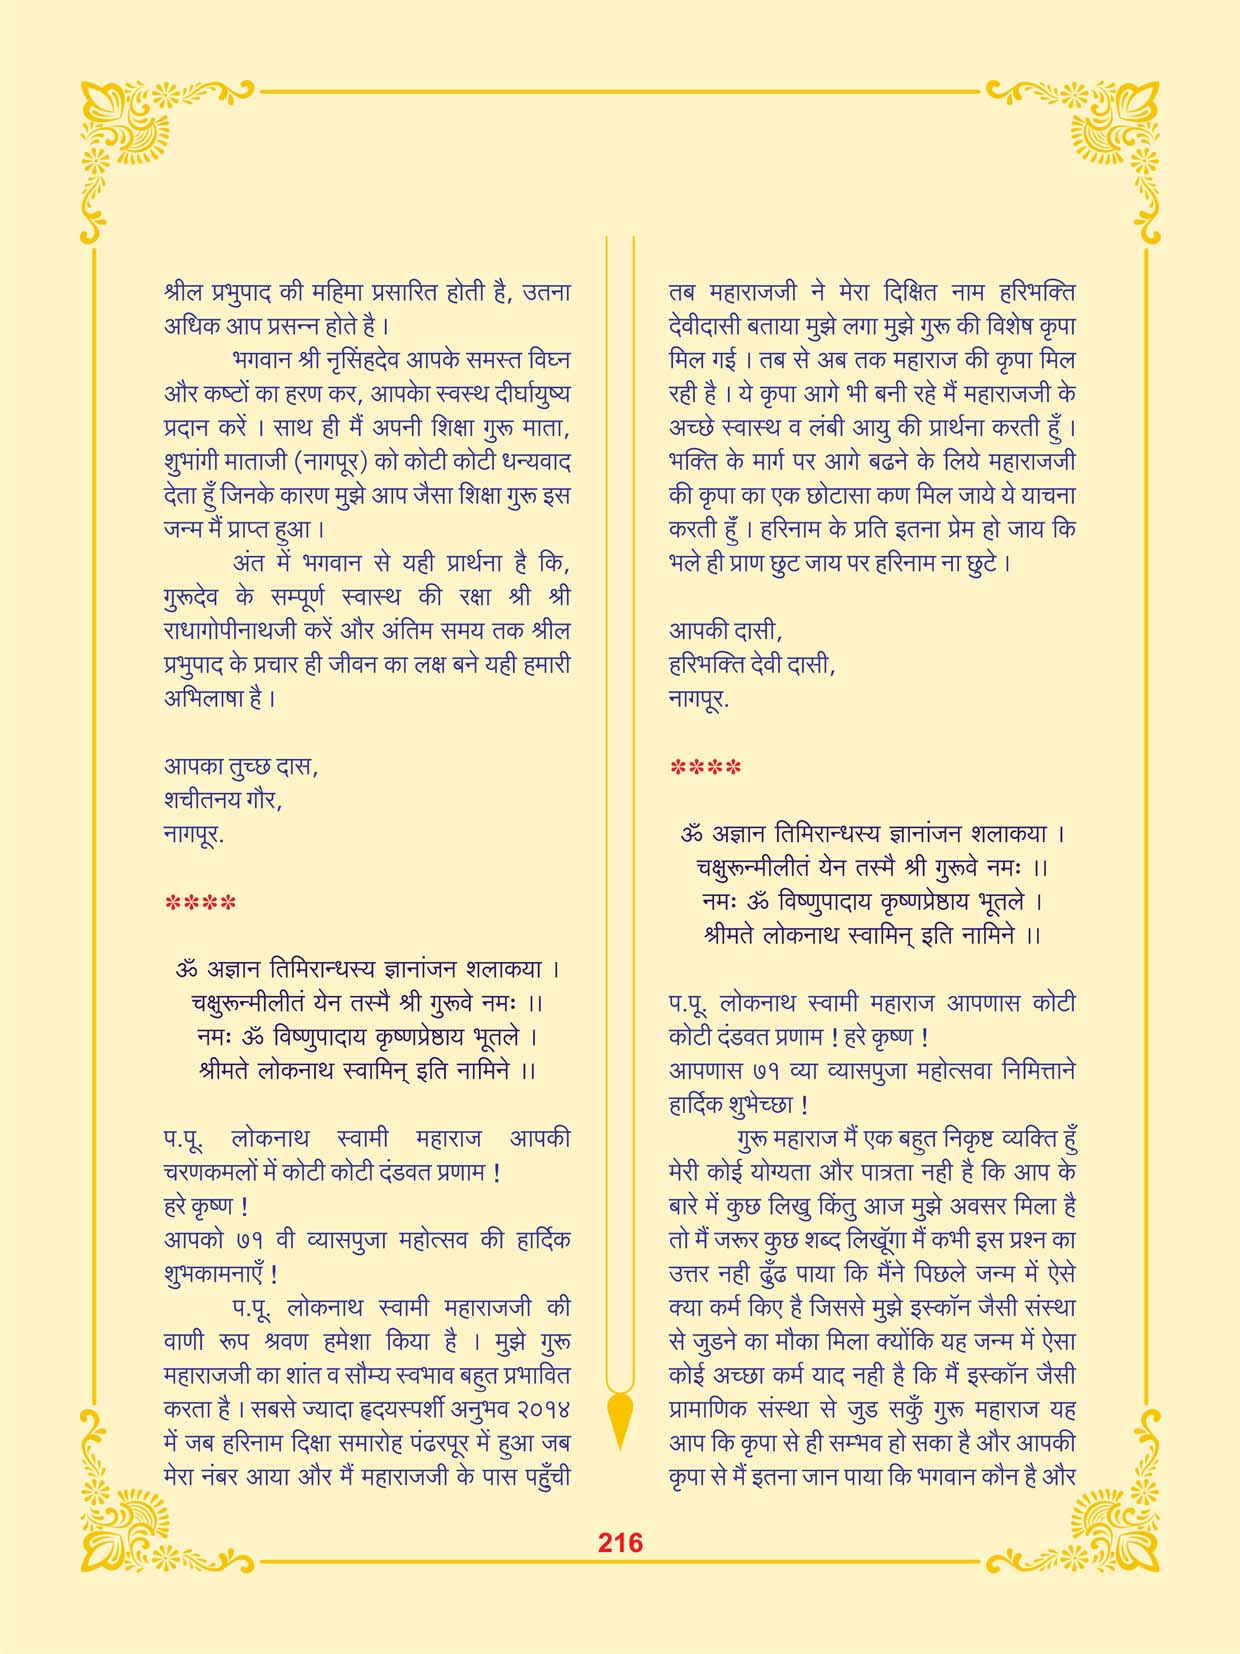 श्रील प्रभुपाद की महिमा प्रसारित होती है, उतना
अधिक आप प्रसन्न होते है ।
भगवान श्री नृसिंहदेव आपके समस्त विघ्न
और कष्टों का हरण कर, आपकेा स्वस्थ दीर्घायुष्य
प्रदान करें । साथ ही मैं अपनी शिक्षा गुरू माता,
शुभांगी माताजी (नागपूर) को कोटी कोटी धन्यवाद
देता हुँ जिनके कारण मुझे आप जैसा शिक्षा गुरू इस
जन्म मैं प्राप्त हुआ ।
अंत में भगवान से यही प्रार्थना है कि,
गुरूदेव के सम्पूर्ण स्वास्थ की रक्षा श्री श्री
राधागोपीनाथजी करें और अंतिम समय तक श्रील
प्रभुपाद के प्रचार ही जीवन का लक्ष बने यही हमारी
अभिलाषा है ।
आपका तुच्छ दास,
शचीतनय गौर,
नागपूर.
****
ॐ अज्ञान तिमिरान्धस्य ज्ञानांजन शलाकया ।
चक्षुरून्मीलीतं येन तस्मै श्री गुरूवे नमः ।।
नमः ॐ विष्णुपादाय कृष्णप्रेष्ठाय भूतले ।
श्रीमते लोकनाथ स्वामिन् इति नामिने ।।
प.पू. लोकनाथ स्वामी महाराज आपकी
चरणकमलों में कोटी कोटी दंडवत प्रणाम !
हरे कृष्ण !
आपको ७१ वी व्यासपुजा महोत्सव की हार्दिक
शुभकामनाएँ !
प.पू. लोकनाथ स्वामी महाराजजी की
वाणी रूप श्रवण हमेशा किया है । मुझे गुरू
महाराजजी का शांत व सौम्य स्वभाव बहुत प्रभावित
करता है । सबसे ज्यादा हृदयस्पर्शी अनुभव २०१४
में जब हरिनाम दिक्षा समारोह पंढरपूर में हुआ जब
मेरा नंबर आया और मैं महाराजजी के पास पहुँची
तब महाराजजी ने मेरा दिक्षित नाम हरिभक्ति
देवीदासी बताया मुझे लगा मुझे गुरू की विशेष कृपा
मिल गई । तब से अब तक महाराज की कृपा मिल
रही है । ये कृपा आगे भी बनी रहे मैं महाराजजी के
अच्छे स्वास्थ व लंबी आयु की प्रार्थना करती हुँ ।
भक्ति के मार्ग पर आगे बढने के लिये महाराजजी
की कृपा का एक छोटासा कण मिल जाये ये याचना
करती हुँ । हरिनाम के प्रति इतना प्रेम हो जाय कि
भले ही प्राण छुट जाय पर हरिनाम ना छुटे ।
आपकी दासी,
हरिभक्ति देवी दासी,
नागपूर.
****
ॐ अज्ञान तिमिरान्धस्य ज्ञानांजन शलाकया ।
चक्षुरून्मीलीतं येन तस्मै श्री गुरूवे नमः ।।
नमः ॐ विष्णुपादाय कृष्णप्रेष्ठाय भूतले ।
श्रीमते लोकनाथ स्वामिन् इति नामिने ।।
प.पू. लोकनाथ स्वामी महाराज आपणास कोटी
कोटी दंडवत प्रणाम ! हरे कृष्ण !
आपणास ७१ व्या व्यासपुजा महोत्सवा निमित्ताने
हार्दिक शुभेच्छा !
गुरू महाराज मैं एक बहुत निकृष्ट व्यक्ति हुँ
मेरी कोई योग्यता और पात्रता नही है कि आप के
बारे में कुछ लिखु किंतु आज मुझे अवसर मिला है
तो मैं जरूर कुछ शब्द लिखूॅगा मैं कभी इस प्रश्न का
उत्तर नही ढुँढ पाया कि मैंने पिछले जन्म में ऐसे
क्या कर्म किए है जिससे मुझे इस्कॉन जैसी संस्था
से जुडने का मौका मिला क्योंकि यह जन्म में ऐसा
कोई अच्छा कर्म याद नही है कि मैं इस्कॉन जैसी
प्रामाणिक संस्था से जुड सकुँ गुरू महाराज यह
आप कि कृपा से ही सम्भव हो सका है और आपकी
कृपा से मैं इतना जान पाया कि भगवान कौन है और
216